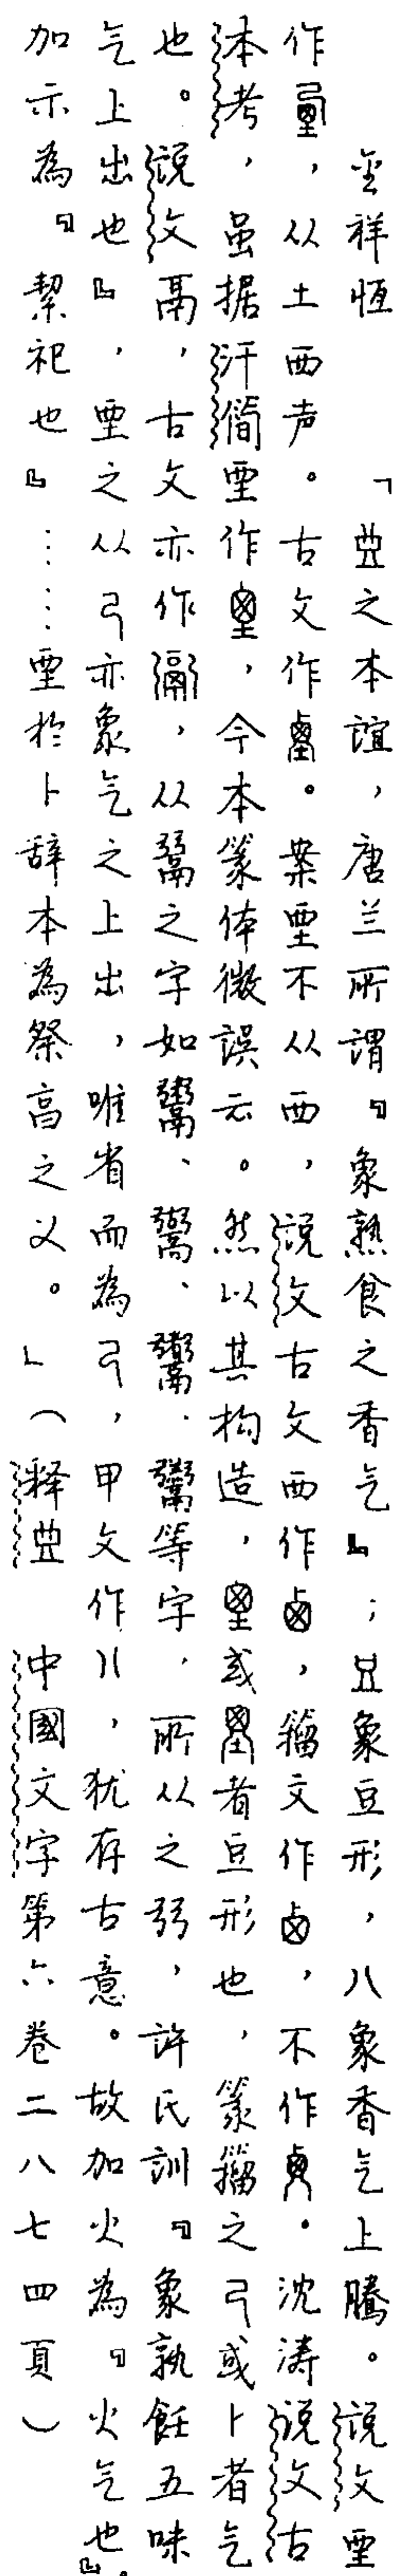 金祥恆　「之本誼，唐兰所謂『象熟食之香气』；象豆形，八象香气上騰。说文垔
作，从土西声。古文作。案垔不从西，说文古文西作，籀文作，不作。沈涛说文古
本考，虽据汗简垔作，今本篆体微误云。然以其构造，或者豆形也，篆籀之弓或卜者气
也。说文鬲，古文亦作䰜，从䰜之字如、、、等字，所从之弜，許氏訓『象孰飪五味
气上出也』，垔之从弓亦象气之上出，唯省而為弓，甲文作八，犹存古意。故加火為『火气也』。
加示為『絜祀也』……垔於卜辞本為祭高之义。」（释　中國文字第六卷二八七四頁）